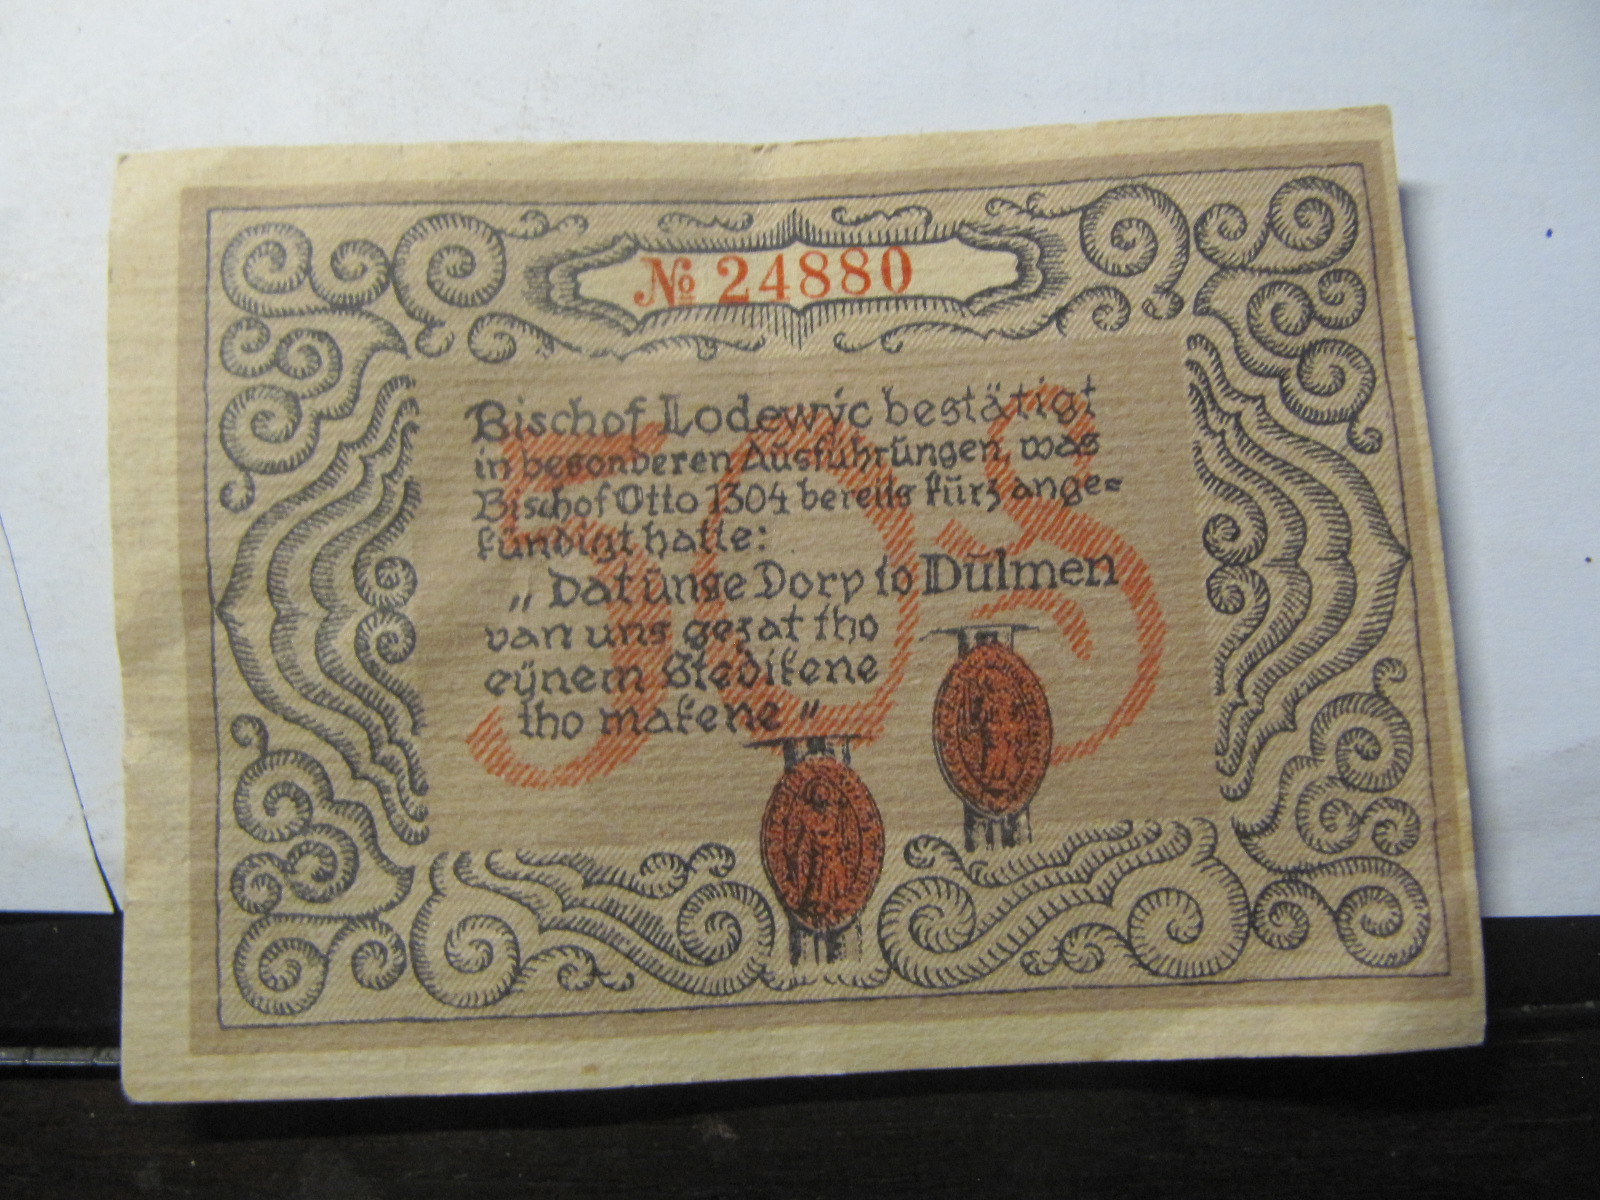 № 24880
Bischof Lodewÿc bestätigt
in besonderen Ausführungen, was
Bischof Otto 1304 bereits kurz ange=
kündigt hatte:
„Dat unse Dorp to Dülmen
van uns gezat tho
eÿnem Stedikene
tho makene"
50 ₰